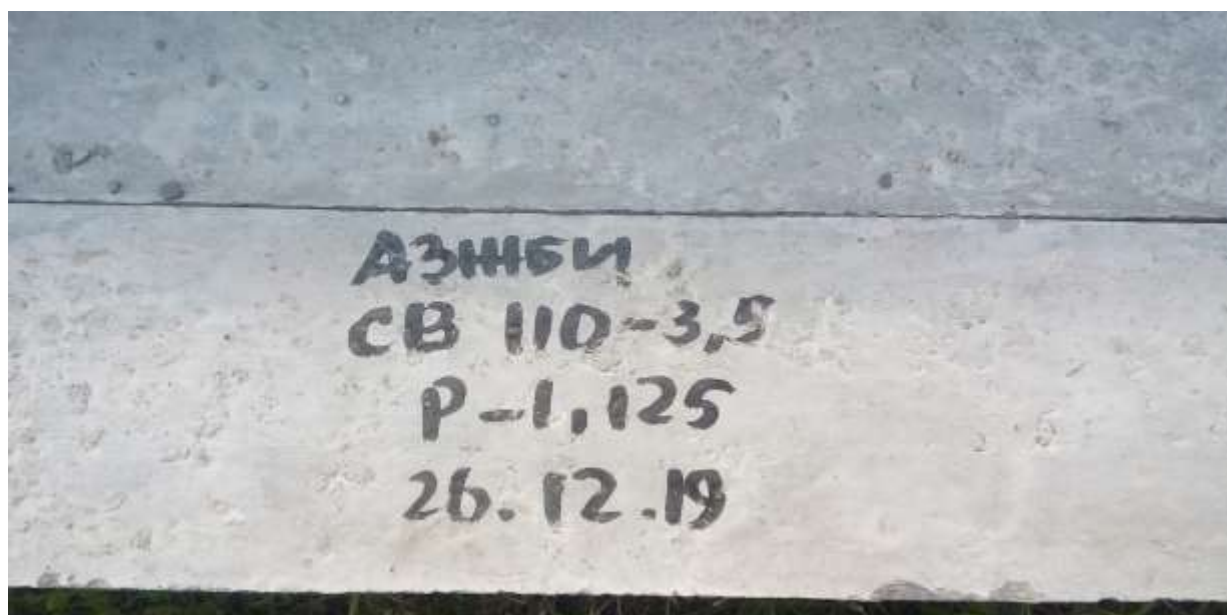 АЗЖБИ
СВ 110-3,5
Р-1,125
26.12.19